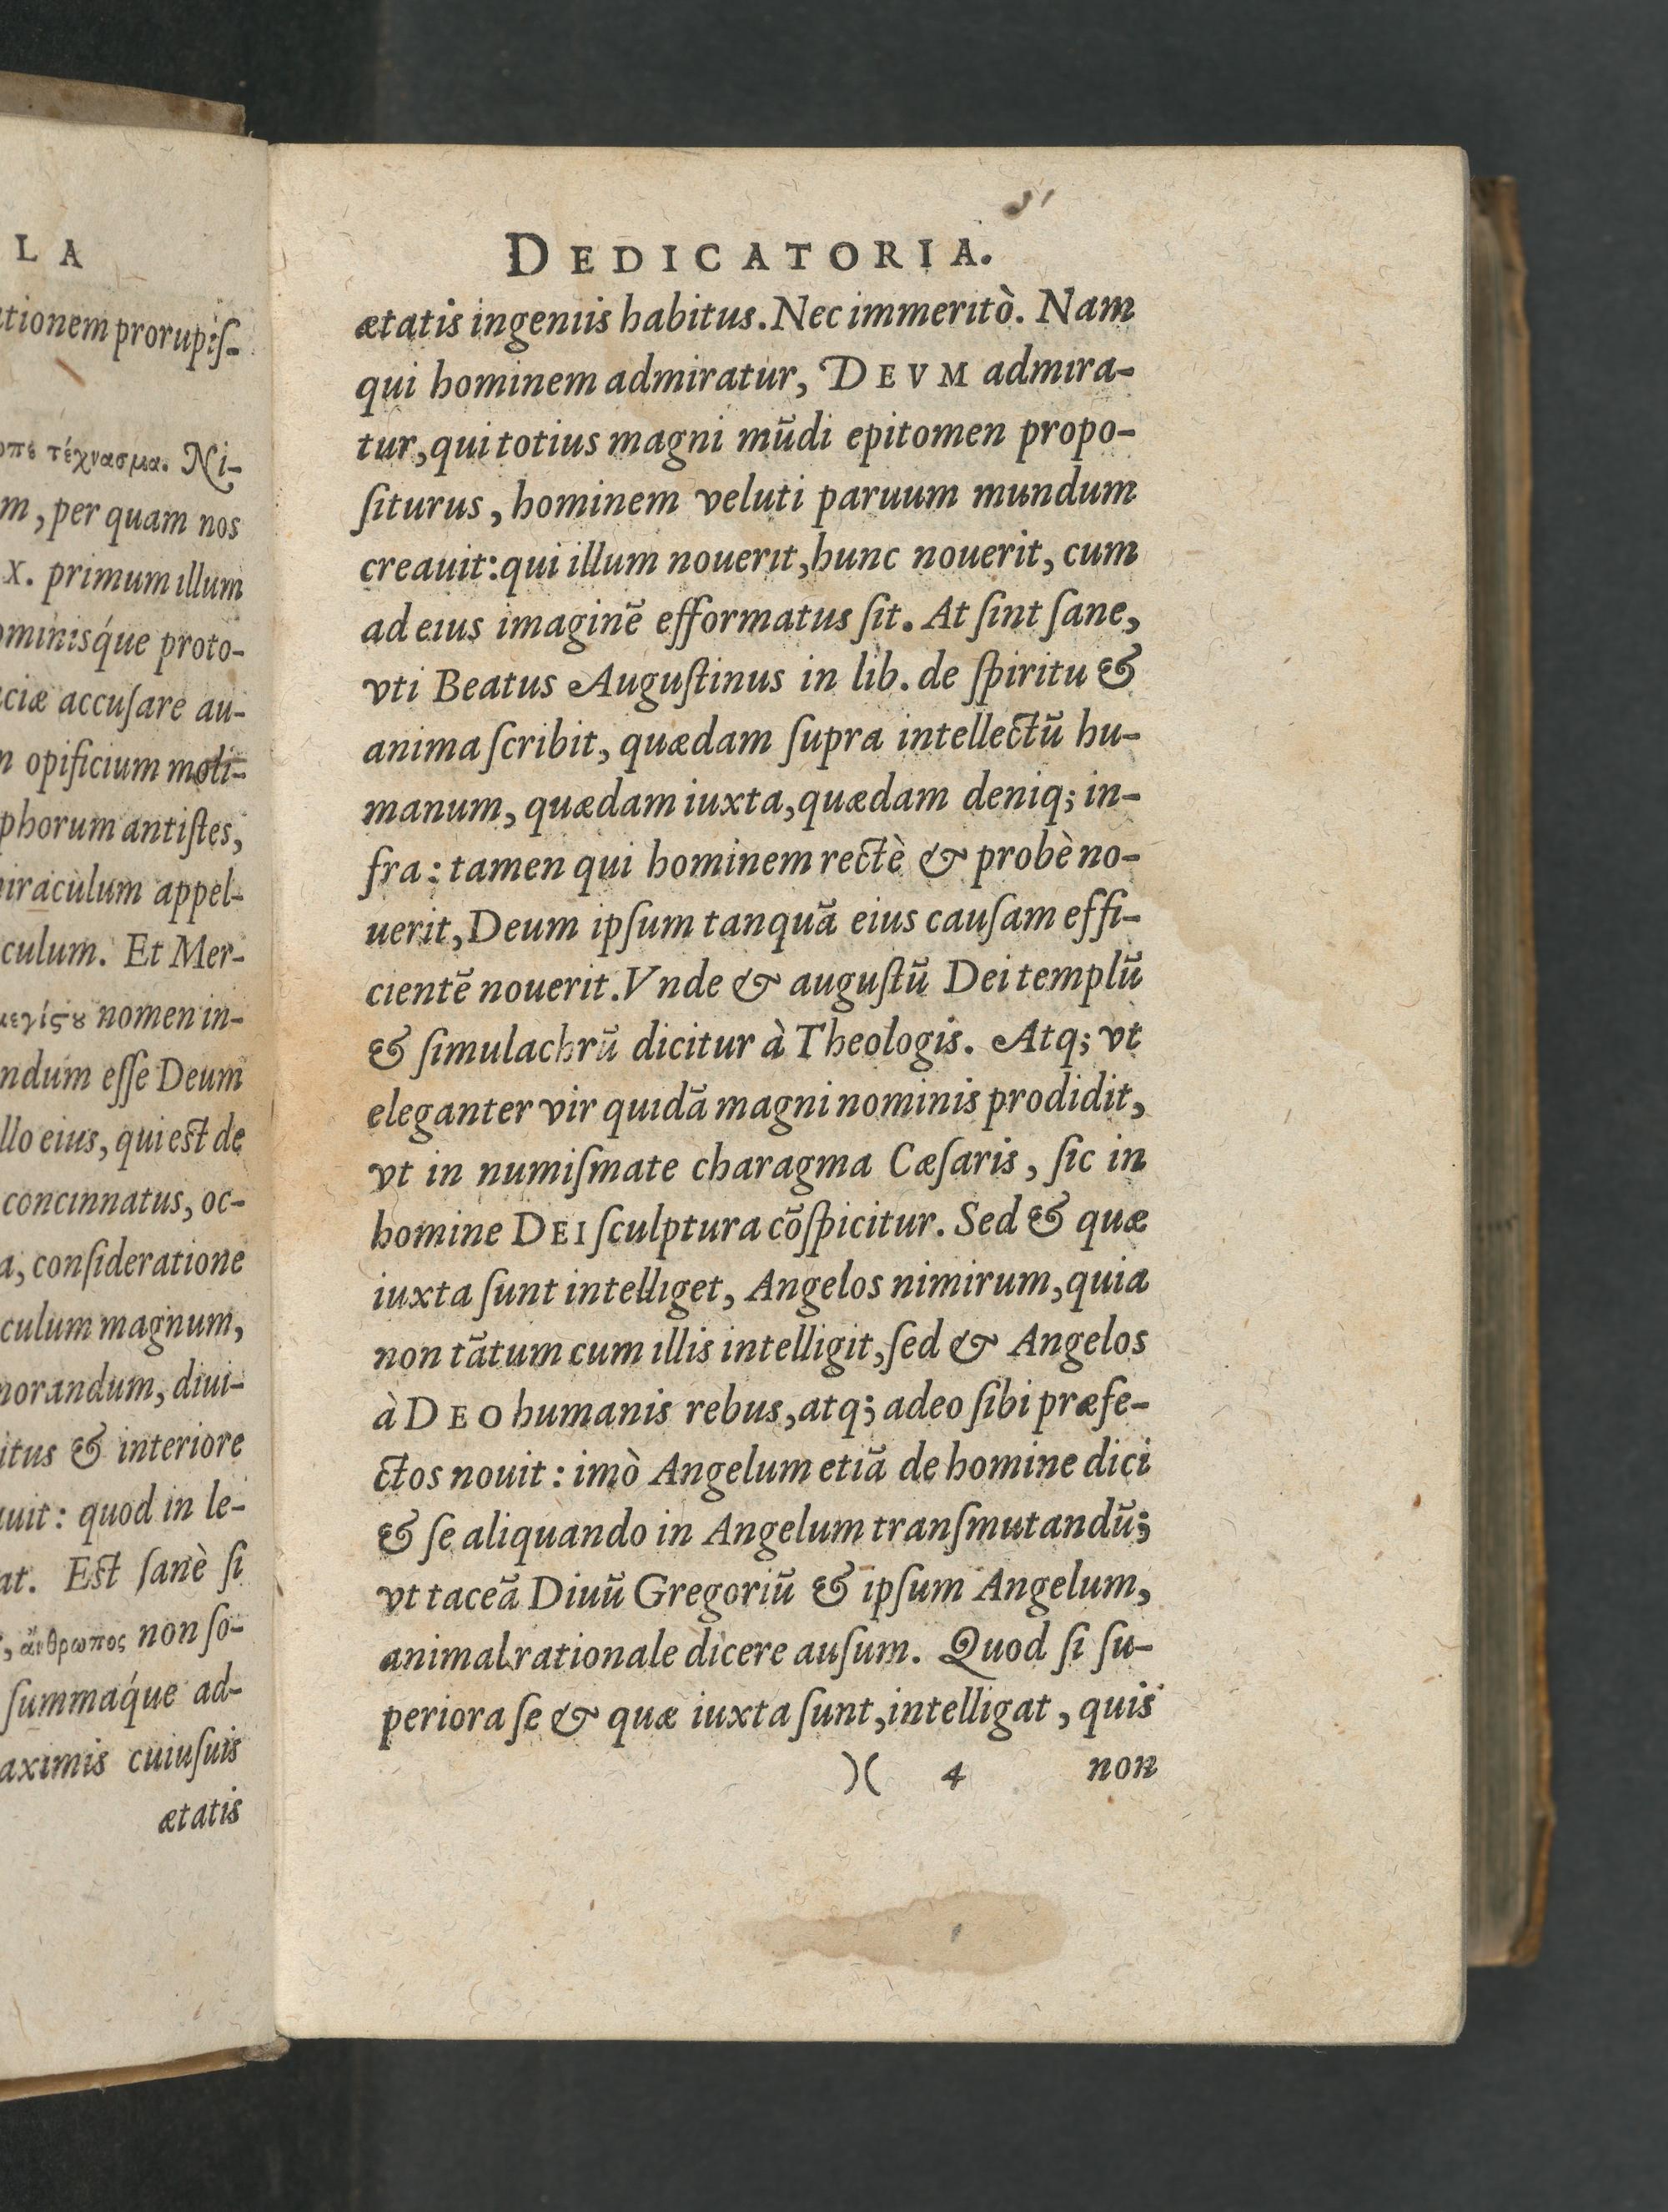 LA
tionem prorupiſ-
τέχνασμα. Ni-
m, per quam nos
X. primum illum
ominisq́ue proto-
ciæ accuſare au-
n opificium moli-
phorum antiſtes,
iraculum appel-
culum. Et Mer-
nomen in-
ndum eſſe Deum
llo eius, qui est de
concinnatus, oc-
a, conſideratione
culum magnum,
morandum, diui-
itus & interiore
uit: quod in le-
at. Est ſanè ſi
, ἄνθρωπος non ſo-
ſummaq́ue ad-
aximis cuiuſuis
ætatis
DEDICATORIA.
ætatis ingeniis habitus. Nec immeritò. Nam
qui hominem admiratur, DEVM admira-
tur, qui totius magni mūdi epitomen propo-
ſiturus, hominem veluti paruum mundum
creauit: qui illum nouerit, hunc nouerit, cum
ad eius imaginē efformatus ſit. At ſint ſane,
vti Beatus Auguſtinus in lib. de ſpiritu &
anima ſcribit, quædam ſupra intellectū hu-
manum, quædam iuxta, quædam deniq; in-
fra: tamen qui hominem rectè & probè no-
uerit, Deum ipſum tanquā eius cauſam effi-
cientē nouerit. Vnde & auguſtū Dei templū
& ſimulachrū dicitur à Theologis. Atq; vt
eleganter vir quidā magni nominis prodidit,
vt in numiſmate charagma Cæſaris, ſic in
homine DEI ſculptura cōſpicitur. Sed & quæ
iuxta ſunt intelliget, Angelos nimirum, quia
non tātum cum illis intelligit, ſed & Angelos
à DEO humanis rebus, atq; adeo ſibi præfe-
ctos nouit: imò Angelum etiā de homine dici
& ſe aliquando in Angelum tranſmutandū;
vt taceā Diuū Gregoriū & ipſum Angelum,
animal rationale dicere auſum. Quod ſi ſu-
periora ſe & quæ iuxta ſunt, intelligat, quis
)( 4 non